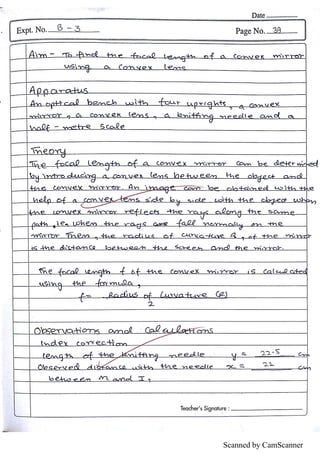 Date
Expt. No. B - 3
Page No. 38
Aim - To find the focal length of a convex mirror
using a convex lens
Apparatus
An optical bench with four uprights, a convex
mirror, a convex lens, a knitting needle and a
half - metre scale
Theory
The focal length of a convex mirror can be determined
by introducing a convex lens between the object and
the convex mirror. An image can be obtained with the
help of a convex lens side by side with the object when
the convex mirror reflects the rays along the same
path, i.e. when the rays are fall normally on the
mirror. Then, the radius of curvature R, of the mirror
is the distance between the screen and the mirror.
The focal length f of the convex mirror is calculated
using the formula,
f = Radius of Curvature (R)
2
Observations and Calculations
Index correction
length of the knitting needle y = 22.5 cm
Observed distance with the needle x = 22 cm
between M and I,
Teacher's Signature :
Scanned by CamScanner